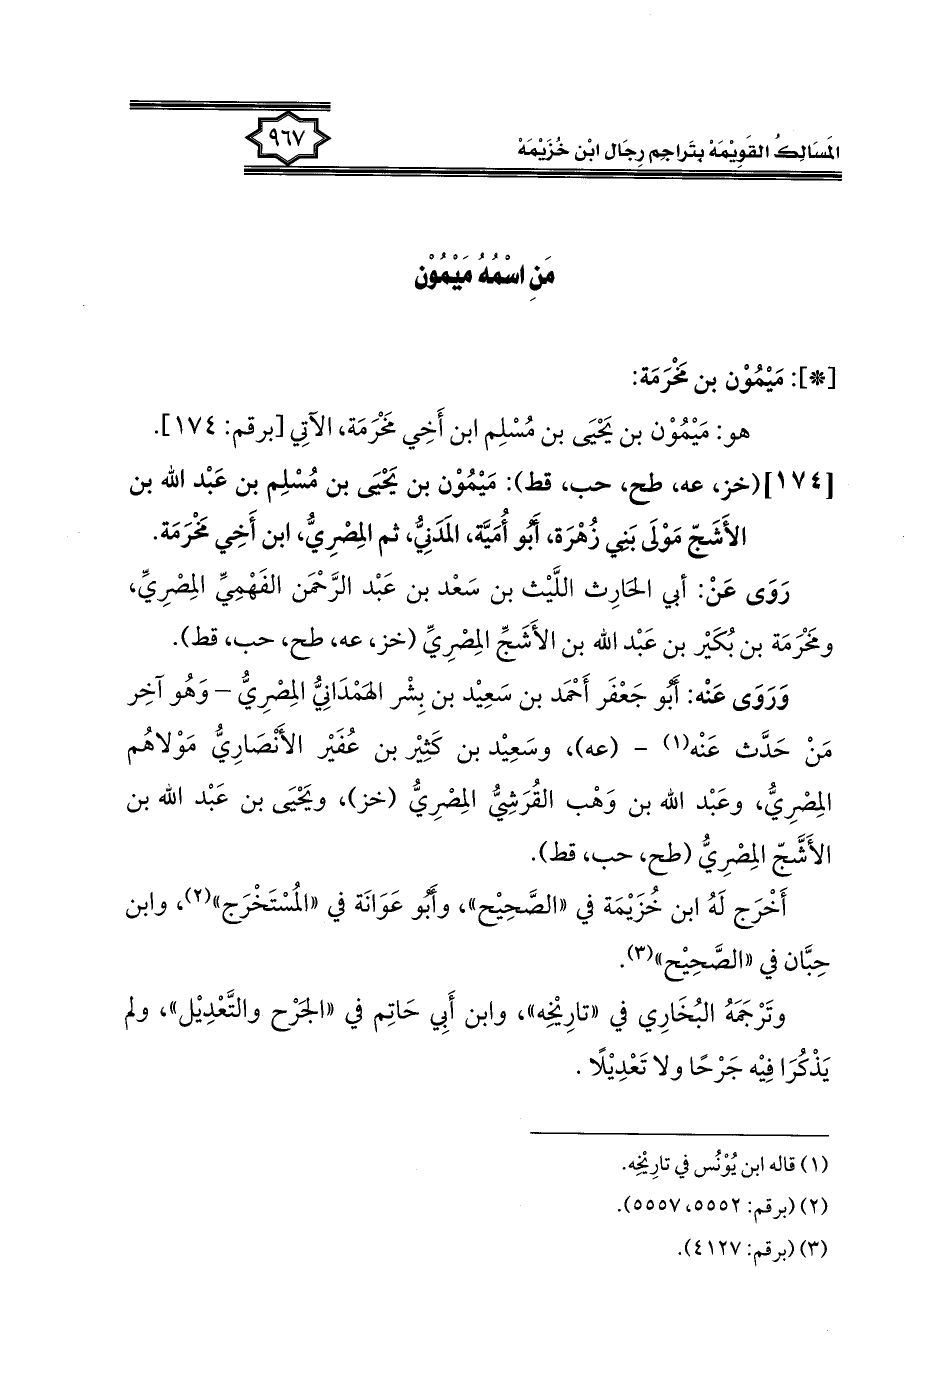 المَسَالِكُ القَوِيْمَهْ بِتَرَاجِم رِجَال ابْن خُزَيْمَهْ
٩٦٧
مَنِ اسْمُهُ مَيْمُوْن
[*]: مَيْمُوْن بن مَخْرَمَة:
هو: مَيْمُوْن بن يَحْيَى بن مُسْلِم ابن أَخِي مَخْرَمَة، الآتِي [برقم: ١٧٤].
[١٧٤](خز، عه، طح، حب، قط): مَيْمُوْن بن يَحْيَى بن مُسْلِم بن عَبْد الله بن
الأَشَجّ مَوْلَى بَنِي زُهْرَة، أَبُو أُمَيَّة، المَدَنِيُّ، ثم المِصْرِيُّ، ابن أَخِي مَخْرَمَة.
رَوَى عَنْ: أبي الحَارِث اللَّيْث بن سَعْد بن عَبْد الرَّحْمَن الفَهْمِيِّ المِصْرِيِّ،
ومَخْرَمة بن بُكَيْر بن عَبْد الله بن الأَشَجِّ المِصْرِيِّ (خز، عه، طح، حب، قط).
وَرَوَى عَنْه: أَبُو جَعْفَر أَحْمَد بن سَعِيْد بن بِشْر الهَمْدَانِيُّ المِصْرِيُّ – وَهُو آخِر
مَنْ حَدَّث عَنْه(١) – (عه)، وسَعِيْد بن كَثِيْر بن عُفَيْر الأَنْصَارِيُّ مَوْلاهُم
المِصْرِيُّ، وعَبْد الله بن وَهْب القُرَشِيُّ المِصْرِيُّ (خز)، ويَحْيَى بن عَبْد الله بن
الأَشَّجّ المِصْرِيُّ (طح، حب، قط).
أَخْرَج لَهُ ابن خُزَيْمَة في «الصَّحِيْح»، وأَبُو عَوَانَة في «المُسْتَخْرَج»(٢)، وابن
حِبَّان في «الصَّحِيْح»(٣).
وتَرْجَمَهُ البُخَارِي في «تارِيْخِه»، وابن أَبِي حَاتِم في «الجَرْح والتَّعْدِيْل»، ولم
يَذْكُرَا فِيْه جَرْحًا ولا تَعْدِيْلًا .
(١) قاله ابن يُوْنُس في تارِيْخِه.
(٢) (برقم: ٥٥٥٢، ٥٥٥٧).
(٣) (برقم: ٤١٢٧).